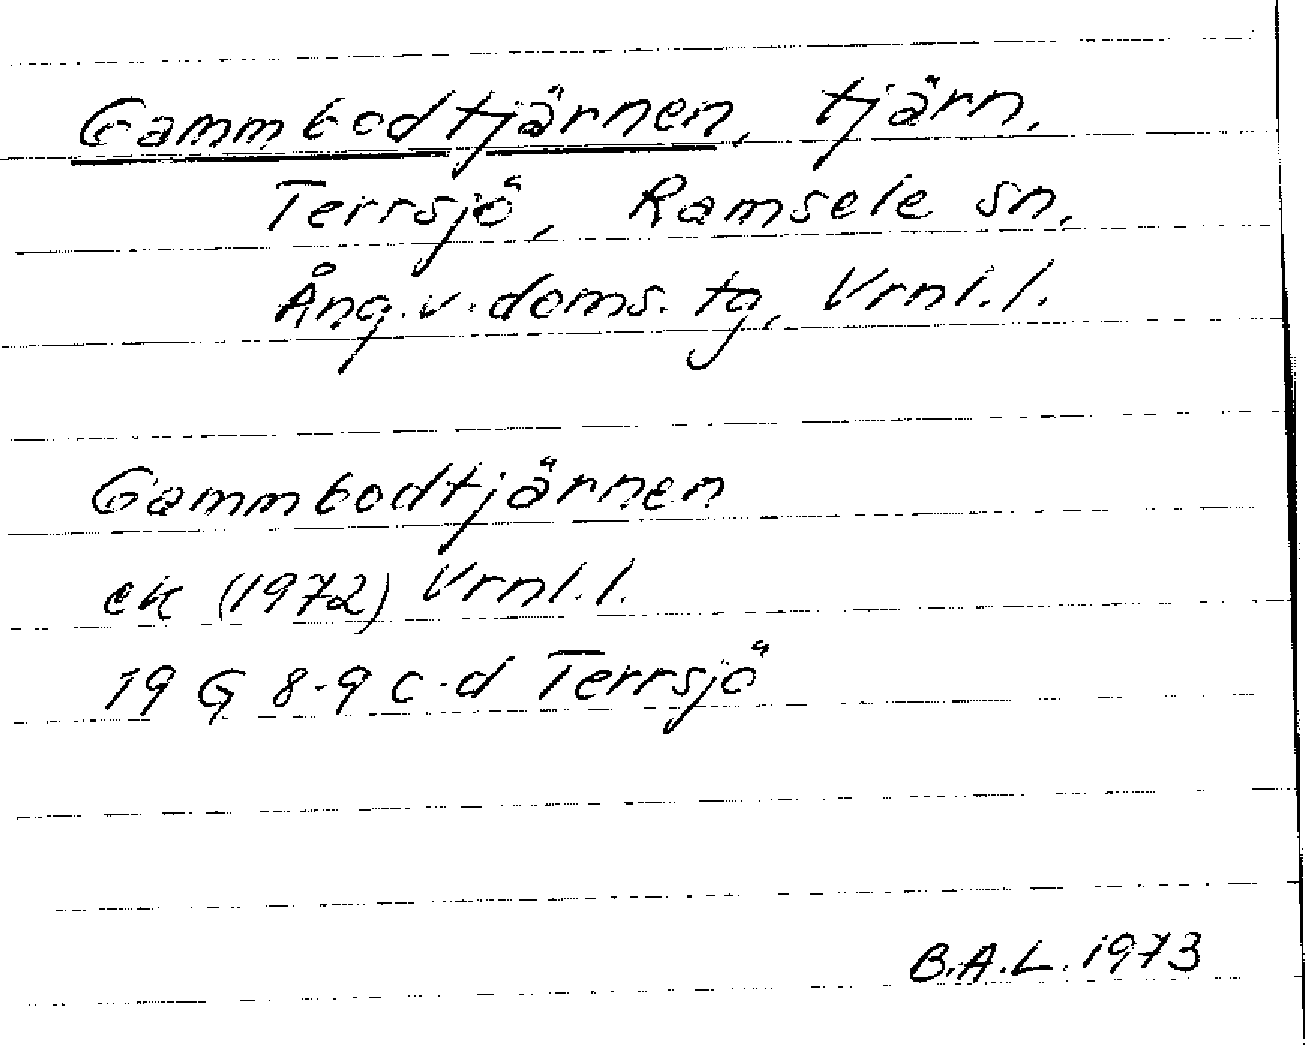 Gammbodtjärnen, tjärn,
Terrsjö, Ramsele sn,
Ång. v. doms. tg, Vrnl. l.
Gammbodtjärnen
ek (1972) Vrnl. l.
19 G 8-9 c-d Terrsjö
B.A.L. 1973